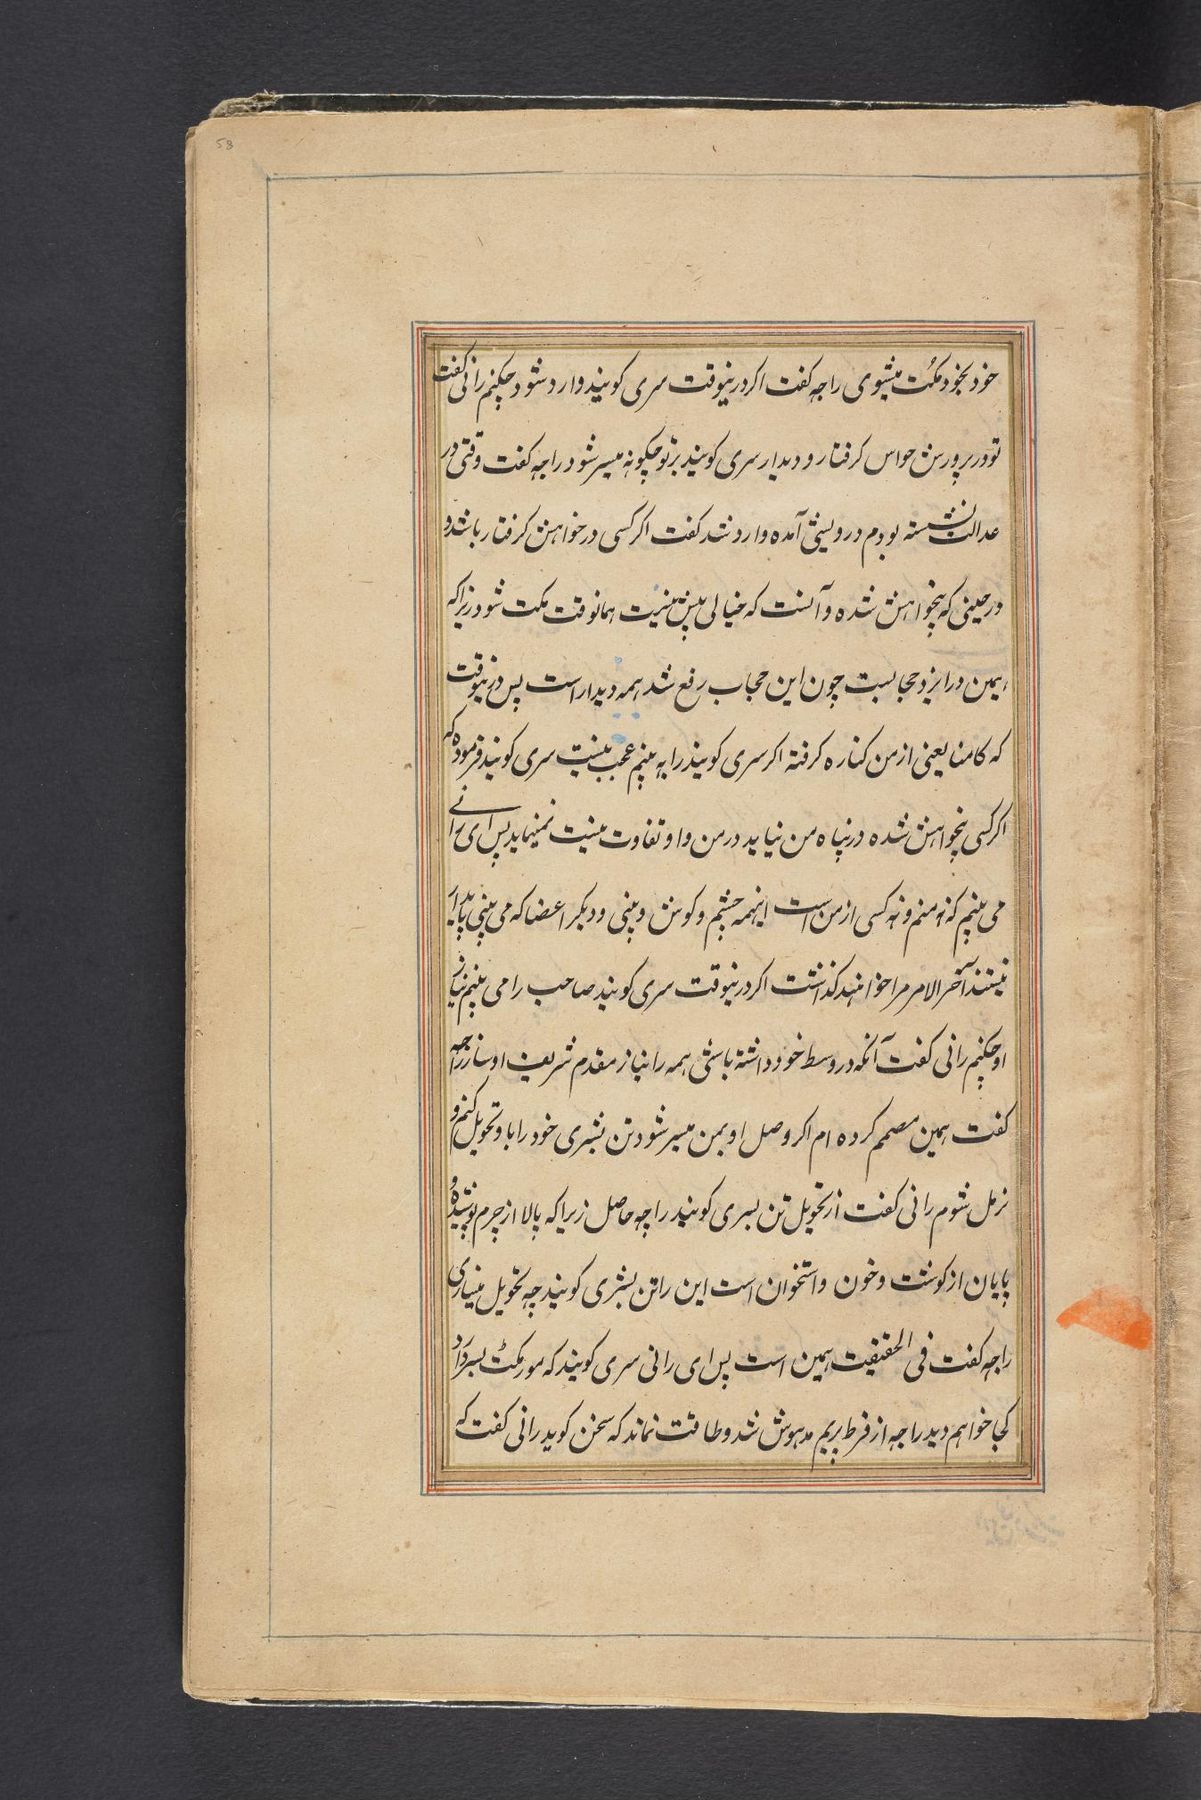 58
خود بخود مکت میشوی راجه کفت اکر درینوقت سری کوبیند وارد شود چکنیم رانی کفت
تو در پرورش حواس کرفتار و دیدار سری کوبیند برتو چکونه میسر شود راجه کفت وقتی در
عدالت نشسته بودم درویشی آمده وارد شد کفت اکر کسی در خواهش کرفتار باشد و
در حینی که بیخواهش شده و آنست که خیالی پیش نیست همانوقت مکت شود زیرا که
همین در ایزد حجابست چون این حجاب رفع شد همه دیدار است پس درینوقت
که کامنا یعنی از من کناره کرفته اکر سری کوبیند را به بینم عجب نیست سری کوبیند فرموده که
اکر کسی بیخواهش شده در پناه من نیاید در من و او تفاوت نیست نمینماید پس ای رانی
می بینم که نه منم و نه کسی از من است اینهمه چشم و کوش و بینی و دیکر اعضا که می بینی پایدار
نیستند آخر الامر مرا خواهند کذاشت اکر درینوقت سری کوبیند صاحب را می بینم نیاز
او چکنیم رانی کفت آنکه در وسط خود داشته باشی همه را نیاز مقدم شریف او ساز راجه
کفت همین مصمم کرده ام اکر وصل او بمن میسر شود تن بشری خود را باو تحویل کنم و
نرمل شوم رانی کفت از تحویل تن بسری کوبیند راچه حاصل زیرا که بالا از چرم پوشیده و
پایان از کوشت و خون و استخوان است این را تن بشری کوبیند چه تحویل میسازی
راجه کفت فی الحقیقت همین است پس ای رانی سری کوبیند که مور مکت بسر دارد
کجا خواهم دید راجه از فرط پریم مدهوش شد و طاقت نماند که سخن کوید رانی کفت که